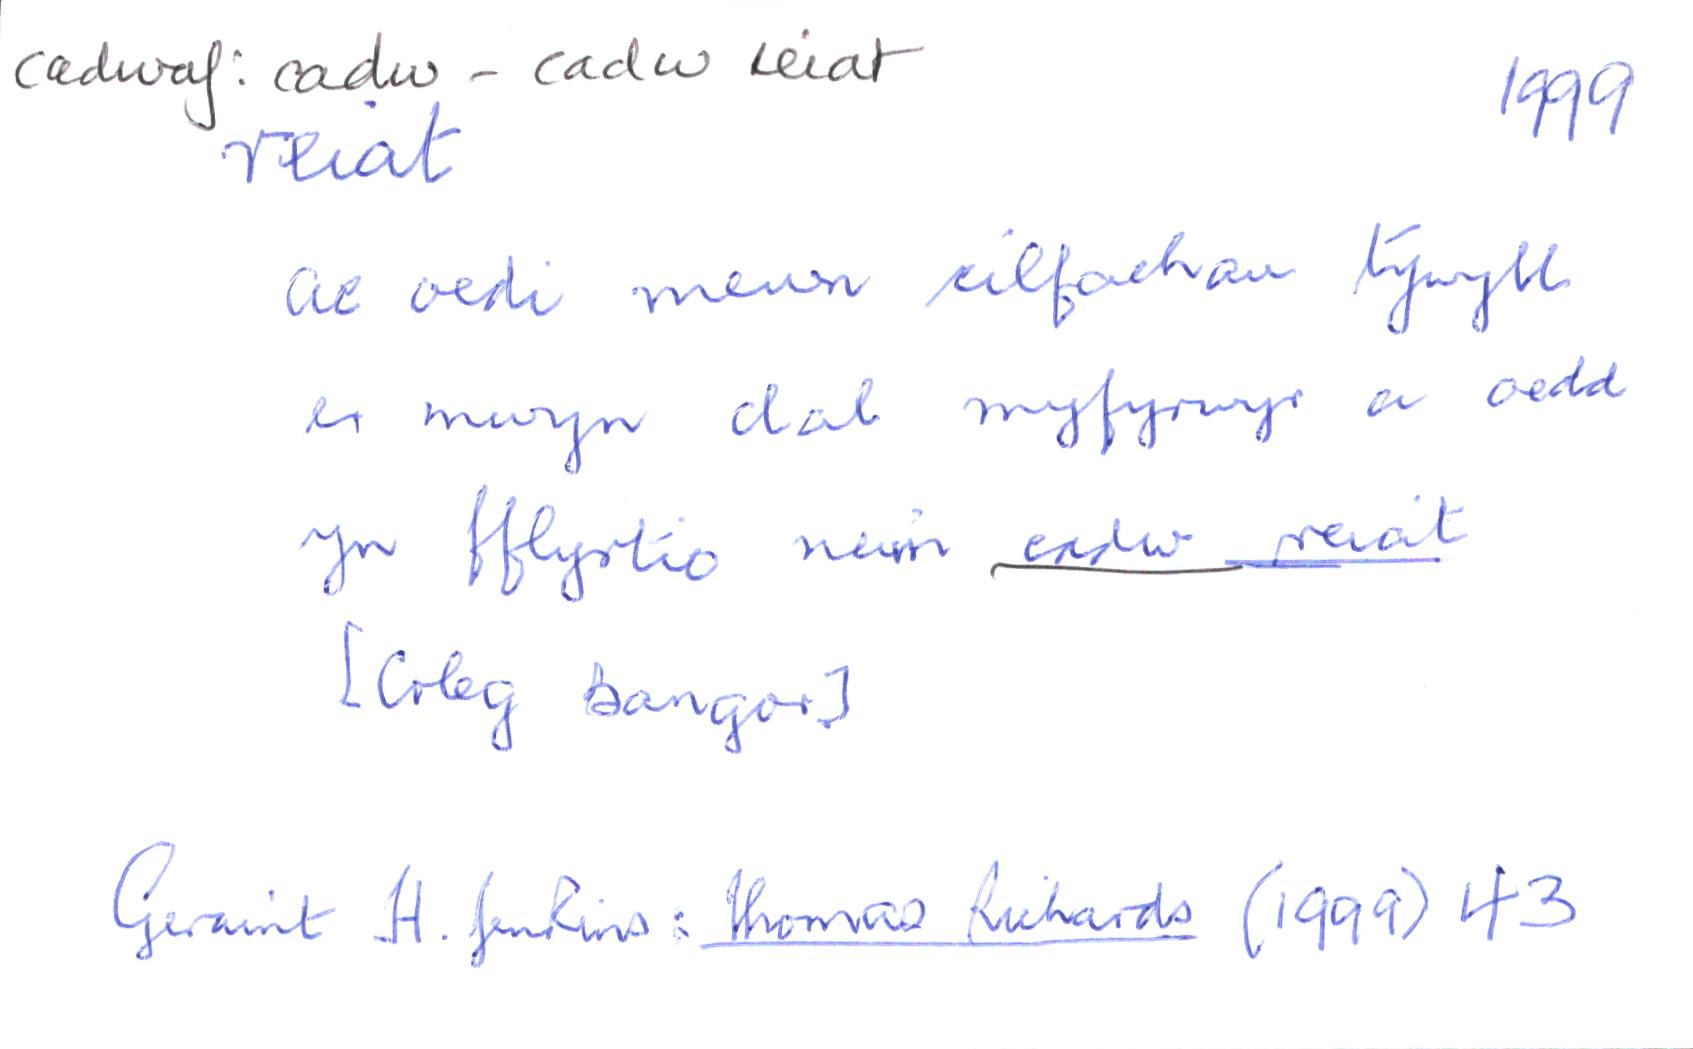 cadwaf: cadw - cadw reiat
1999
reiat
ac oedi mewn cilfachau tywyll
er mwyn dal myfyrwyr a oedd
yn fflyrtio neu'n cadw reiat
[Coleg Bangor]
Geraint H. Jenkins: Thomas Richards (1999) 43